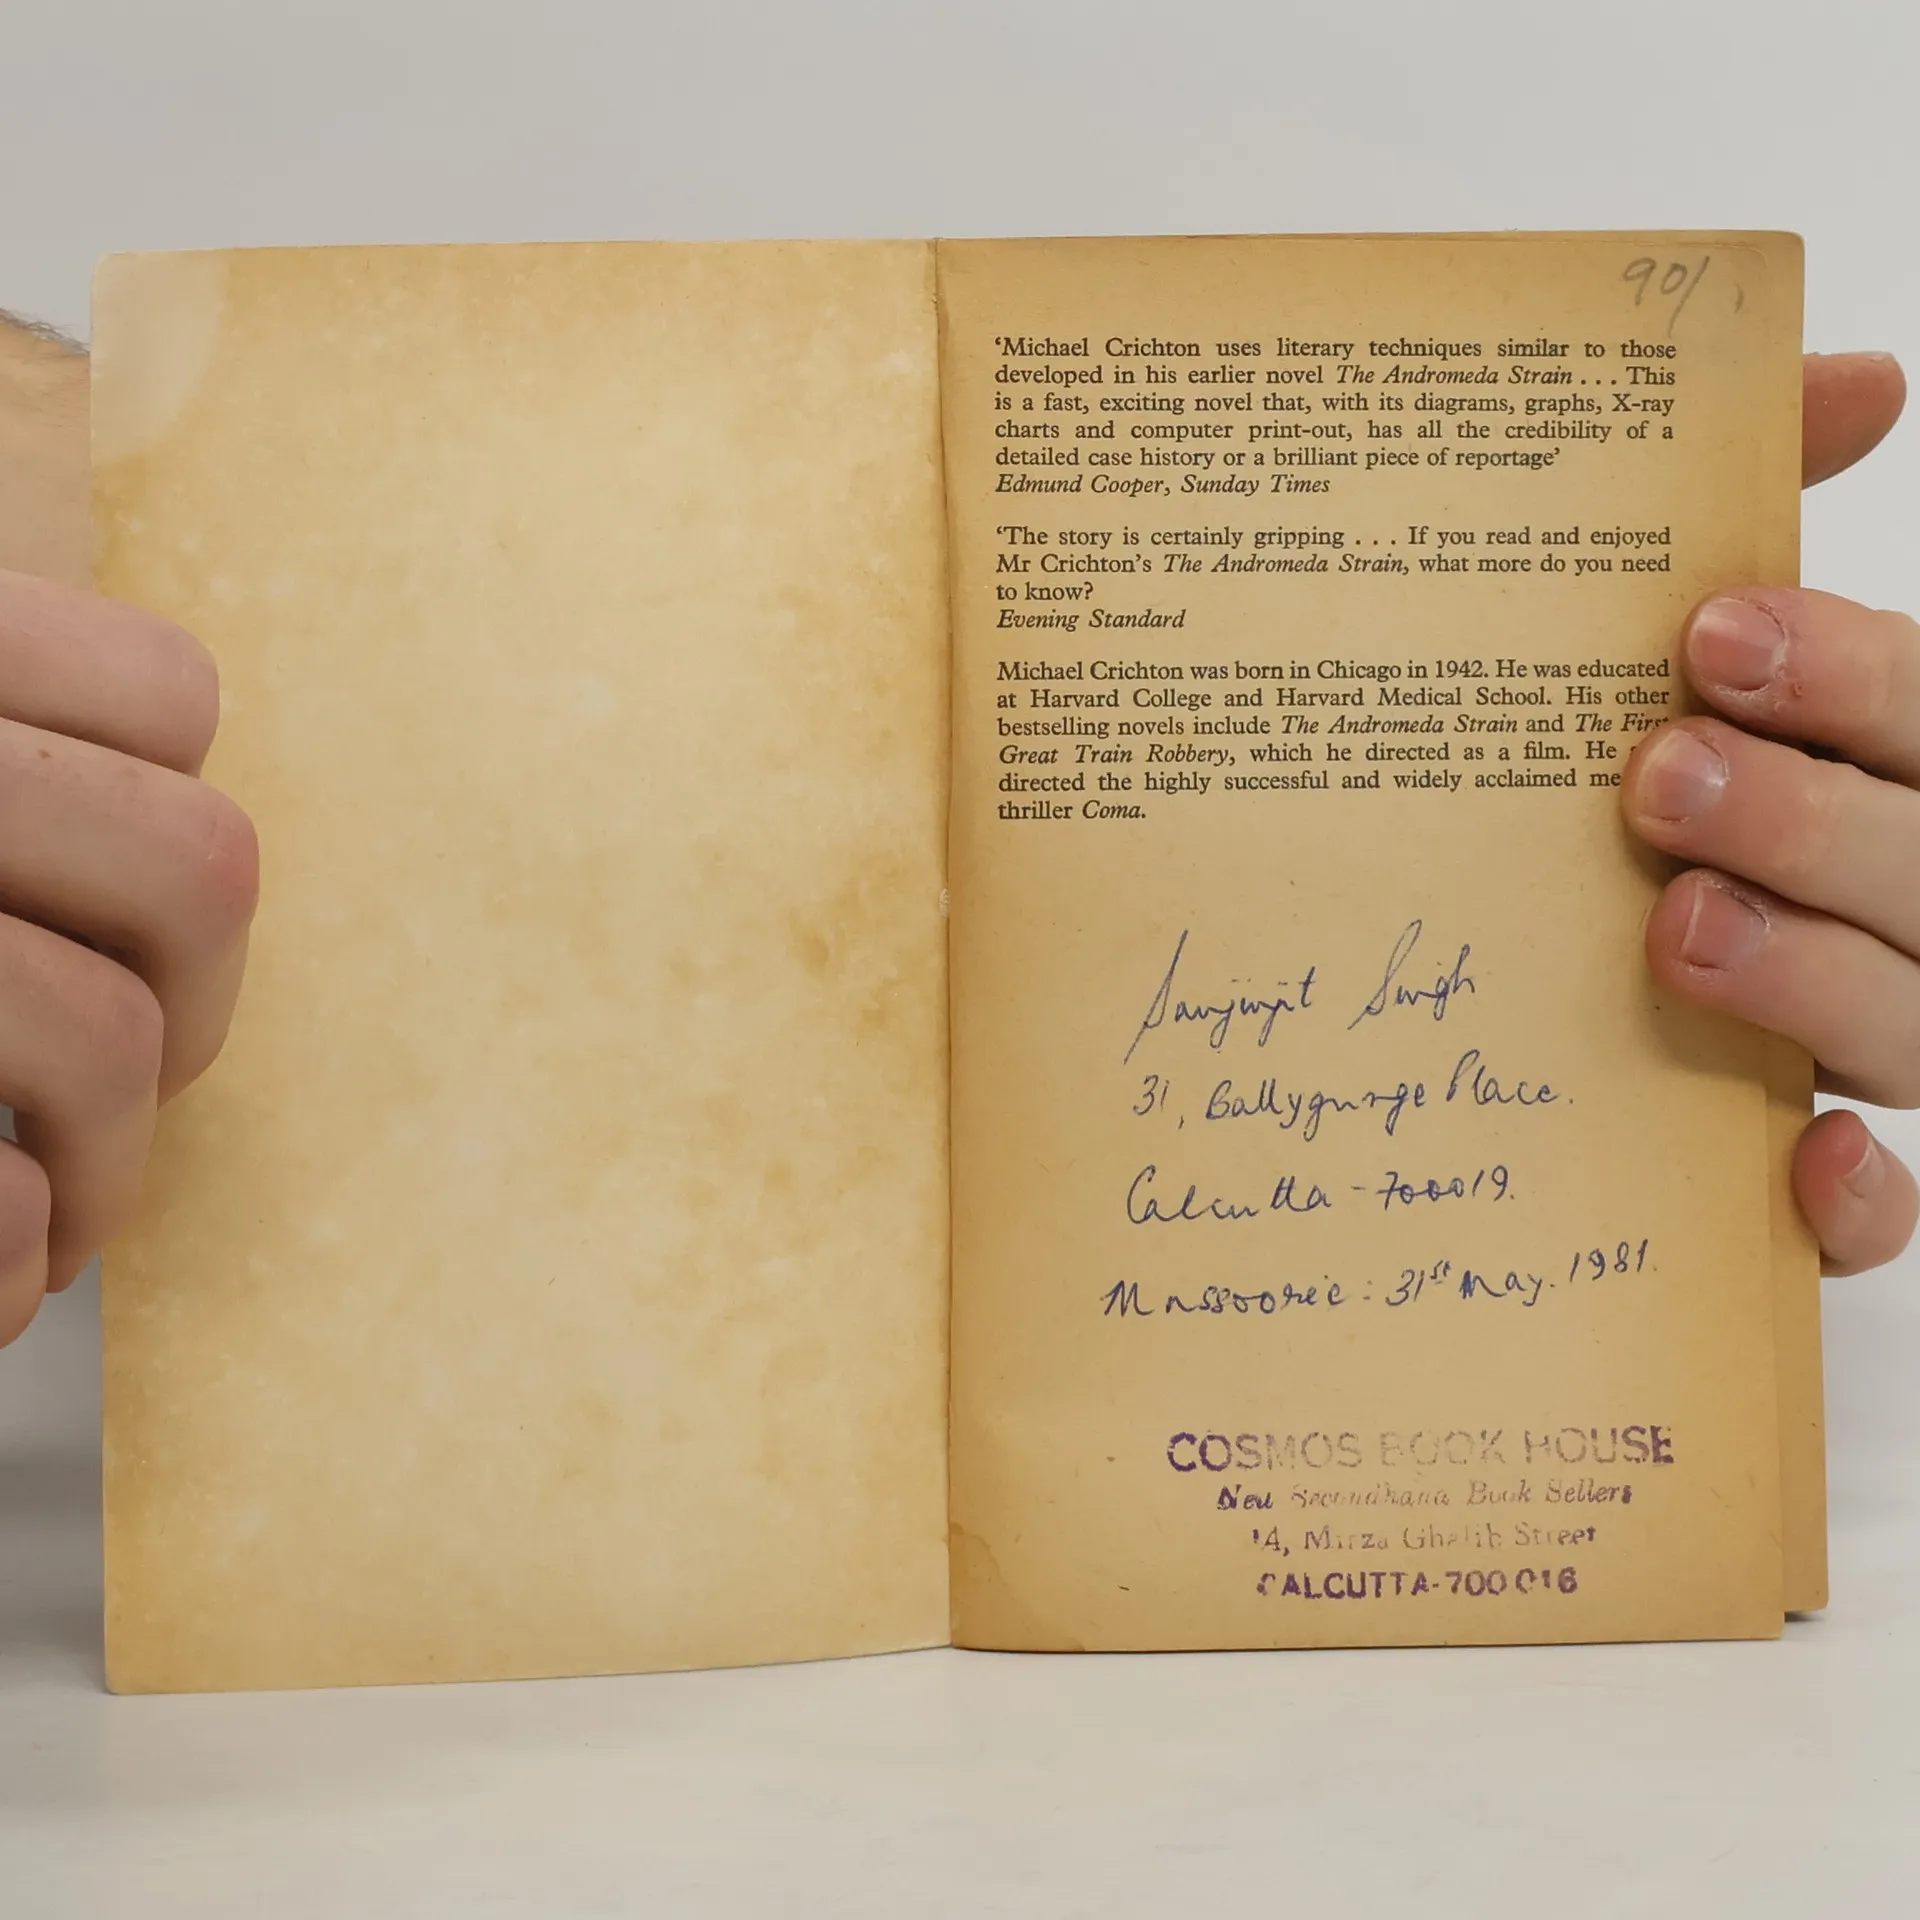 90/
‘Michael Crichton uses literary techniques similar to those
developed in his earlier novel The Andromeda Strain . . . This
is a fast, exciting novel that, with its diagrams, graphs, X-ray
charts and computer print-out, has all the credibility of a
detailed case history or a brilliant piece of reportage’
Edmund Cooper, Sunday Times
‘The story is certainly gripping . . . If you read and enjoyed
Mr Crichton’s The Andromeda Strain, what more do you need
to know?
Evening Standard
Michael Crichton was born in Chicago in 1942. He was educated
at Harvard College and Harvard Medical School. His other
bestselling novels include The Andromeda Strain and The First
Great Train Robbery, which he directed as a film. He
directed the highly successful and widely acclaimed
thriller Coma.
Singh
31, Ballygunge Place.
Calcutta - 700019.
Mussoorie : 31st May. 1981.
COSMOS BOOK HOUSE
New Secondhand Book Sellers
14, Mirza Ghalib Street
CALCUTTA-700 016